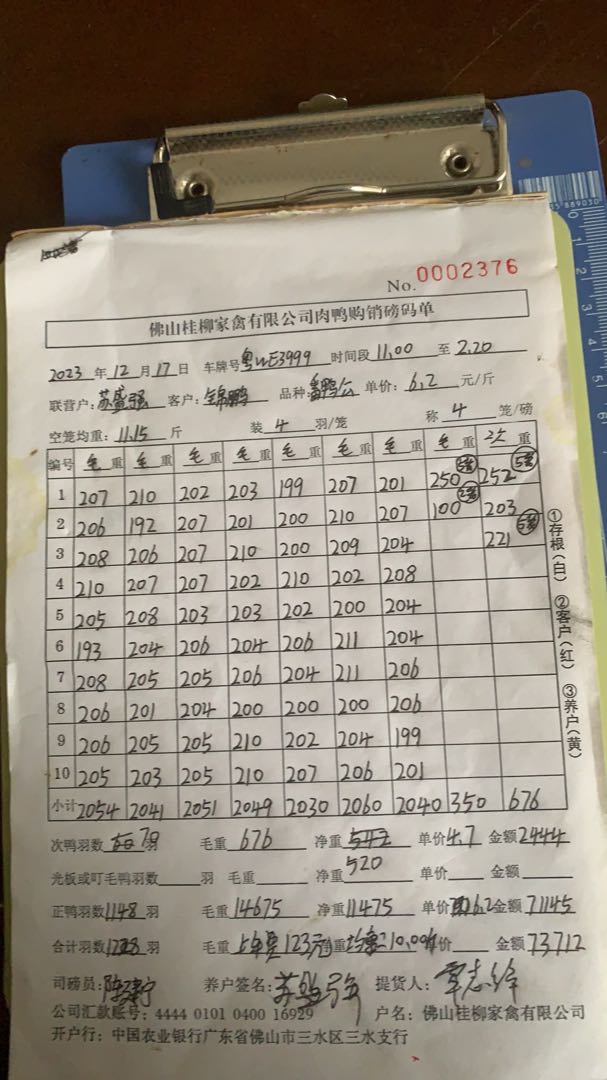 No. 0002376
佛山桂柳家禽有限公司肉鸭购销磅码单
2023 年 12 月 17 日 车牌号 粤WE3999 时间段 11.00 至 2.20
联营户: 苏盛强 客户: 锦鹏 品种: 番鸭公 单价: 6.2 元/斤
空笼均重: 11.15 斤 装 4 羽/笼 称 4 笼/磅
编号 毛重 毛重 毛重 毛重 毛重 毛重 毛重 毛重 二次重
1 207 210 202 203 199 207 201 250 5笼 252 5笼
2 206 192 207 201 200 210 207 100 2笼 203
3 208 206 207 210 200 209 204 221 5笼
4 210 207 207 202 210 202 208
5 205 208 203 203 202 200 204
6 193 204 206 204 206 211 204
7 208 205 205 206 204 211 206
8 206 201 204 200 200 200 206
9 206 205 205 210 202 204 199
10 205 203 205 210 207 206 201
小计 2054 2041 2051 2049 2030 2060 2040 350 676
次鸭羽数 79 羽 毛重 676 净重 542 520 单价 4.7 金额 2444
光板或叮毛鸭羽数 羽 毛重 净重 单价 金额
正鸭羽数 1148 羽 毛重 14675 净重 11475 单价 6.2 金额 71145
合计羽数 羽 毛重 123元 净重 10.00 单价 金额 73712
司磅员: 养户签名: 苏盛强 提货人: 覃志锋
公司汇款账号: 4444 0101 0400 16929 户名: 佛山桂柳家禽有限公司
开户行: 中国农业银行广东省佛山市三水区三水支行
①存根(白) ②客户(红) ③养户(黄)
889030
0
1
2
3
4
5
6